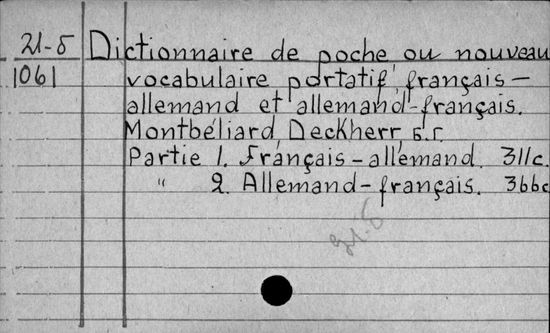 21-5 Dictionnaire de poche ou nouveau
1061 vocabulaire portatif français-
allemand et allemand-français.
Montbéliard, Deckherr, б.г.
Partie 1. Français-allemand. 311с.
" 2. Allemand-français. 366с
21-5